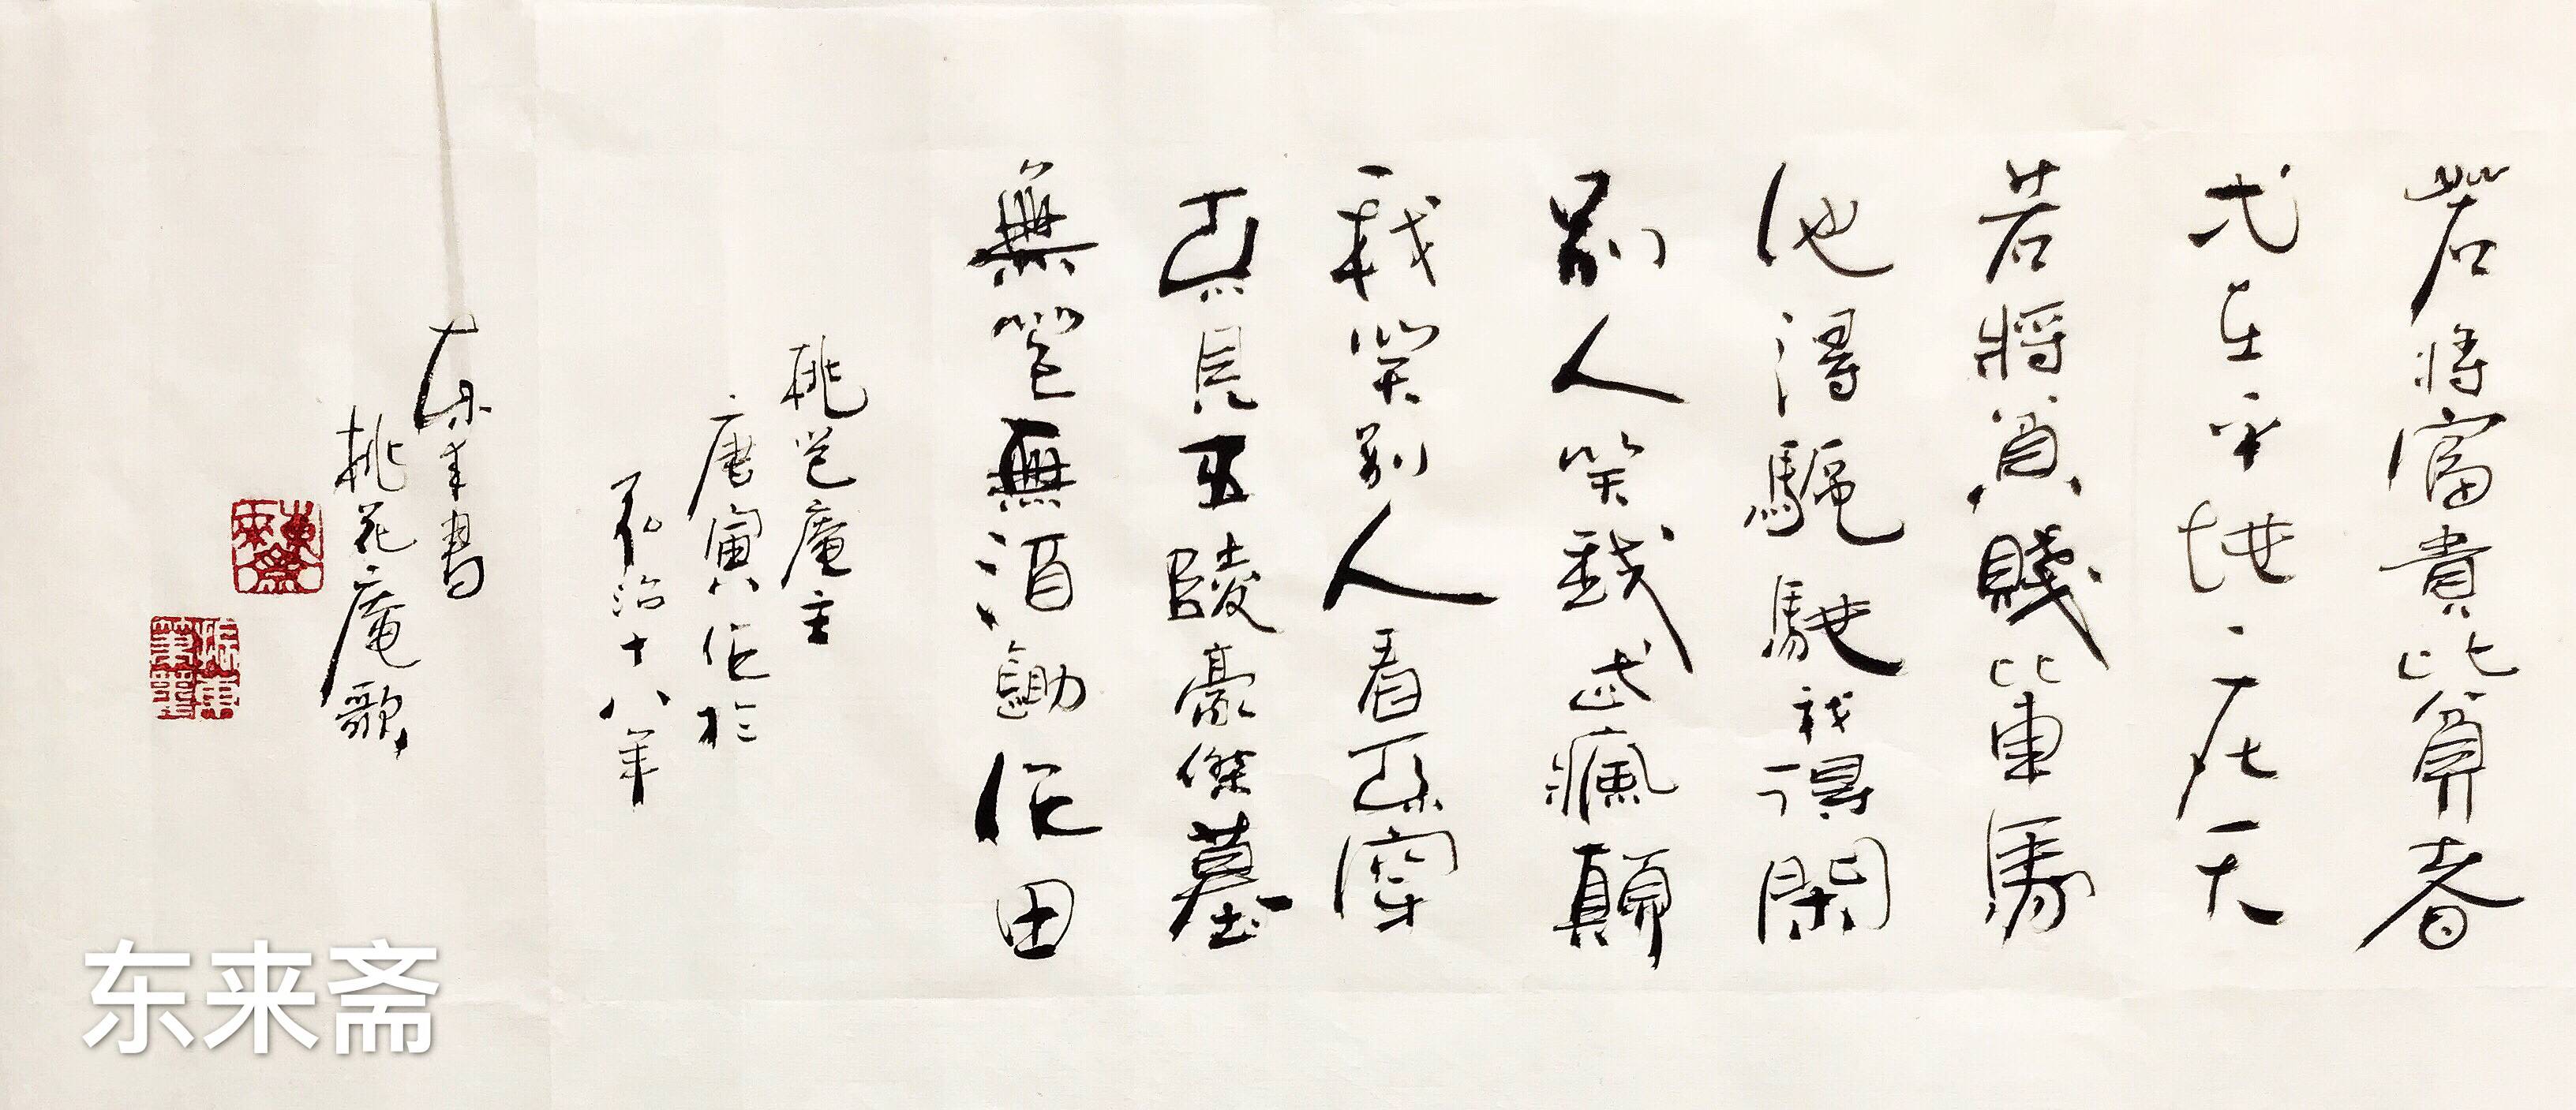 若將富貴比貧者
弌在平地一在天
若將貧賤比車馬
他得驅馳我得閑
別人笑我忒瘋顛
我笑別人看不穿
不見五陵豪傑墓
無花無酒鋤作田
桃花庵主
唐寅作於
弘治十八年
東来書
桃花庵歌
東來齋
东来斋